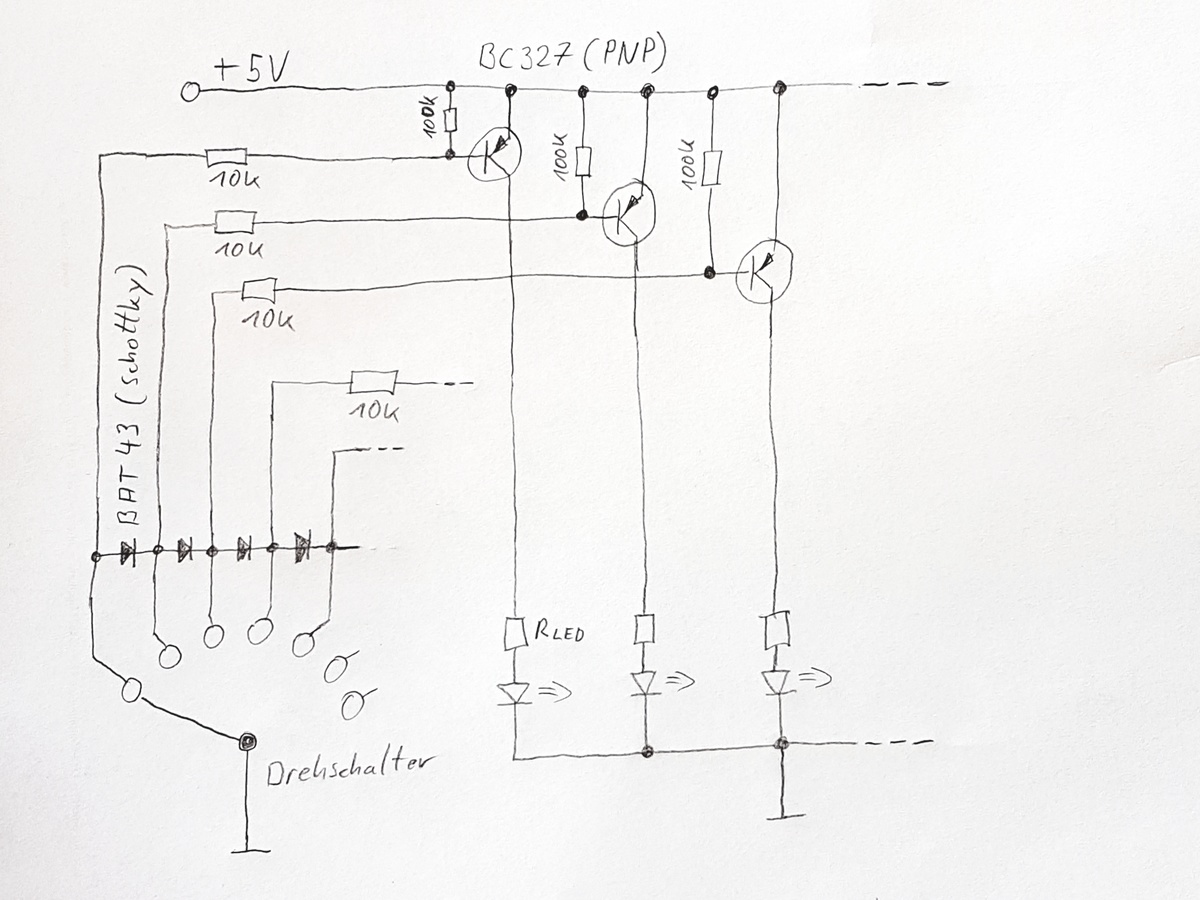 BC327 (PNP)
+5V
100k
100k
100k
10k
10k
10k
10k
BAT 43 (schottky)
RLED
Drehschalter